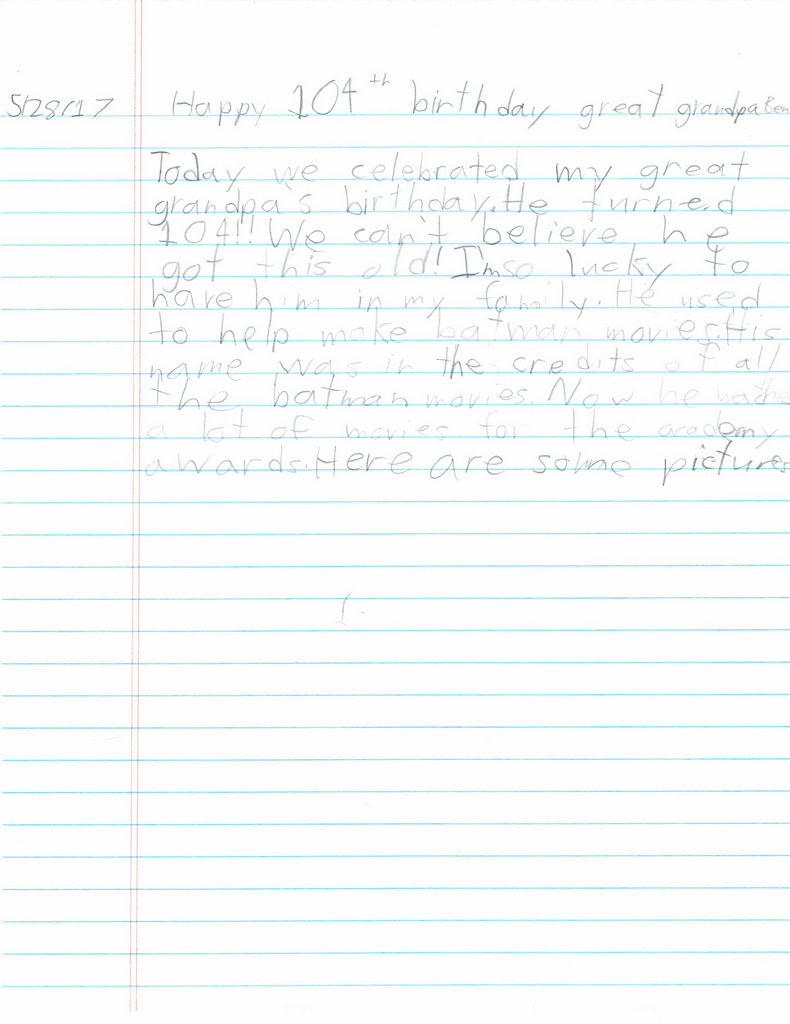 5/28/17 Happy 104th birthday great grandpa Ben
Today we celebrated my great
grandpas birthday. He turned
104!! We can't believe he
got this old! I'm so lucky to
have him in my family. He used
to help make batman movies. His
name was in the credits of all
the batman movies. Now he
a lot of movies for the academy
awards. Here are some pictures